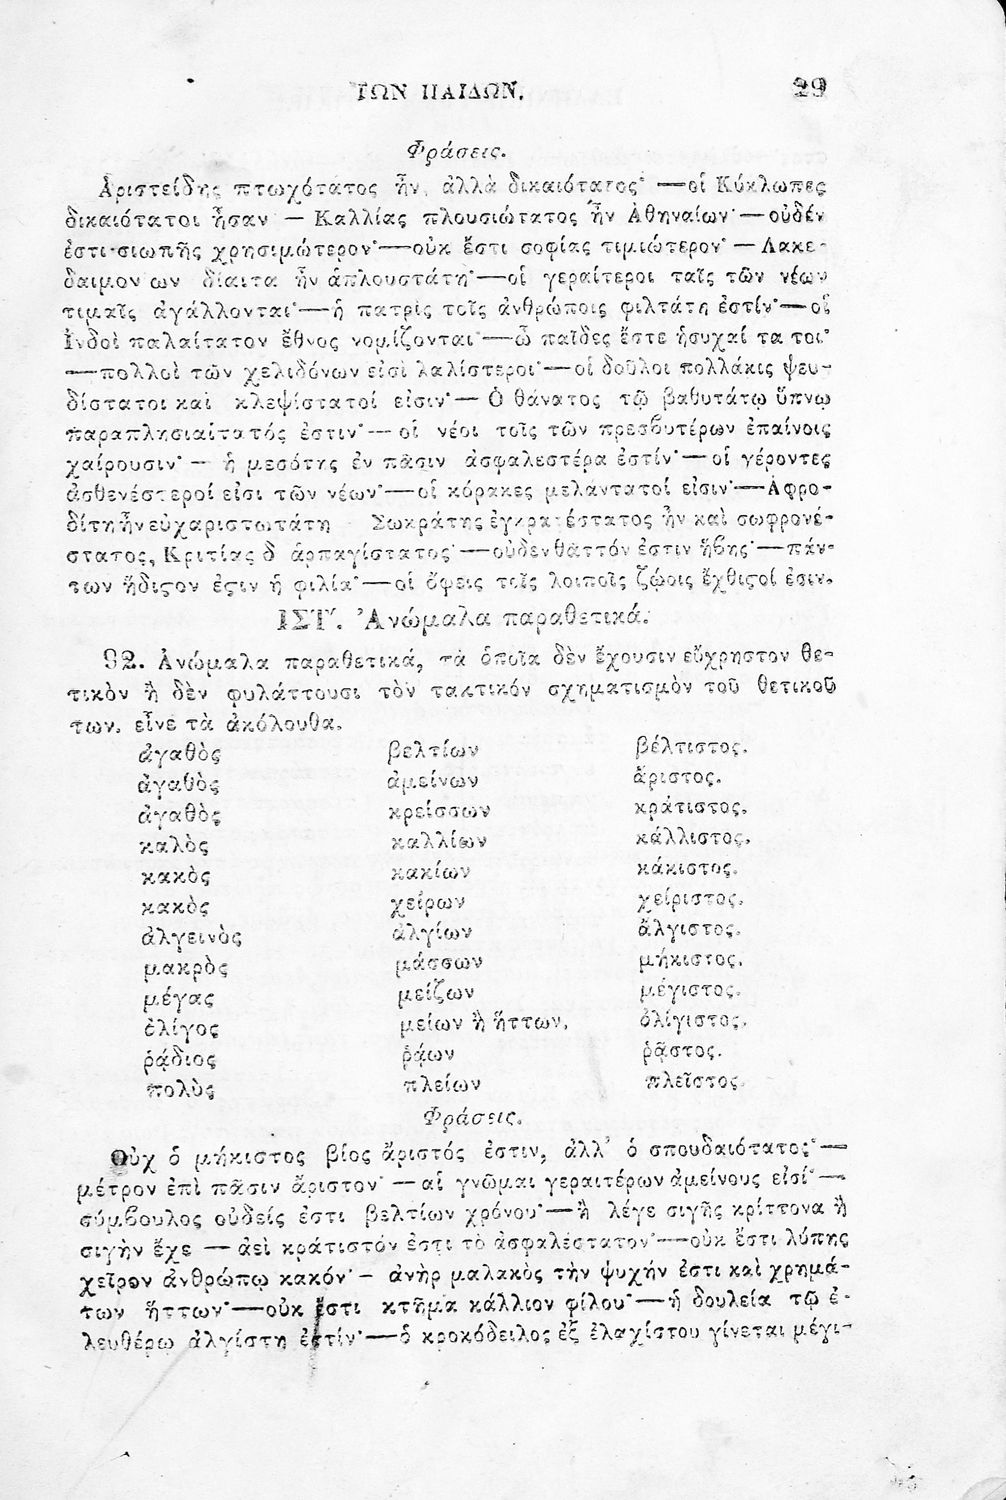 ΤΩΝ ΠΑΙΔΩΝ.
29
Φράσεις.
Ἀριστείδης πτωχότατος ἦν, ἀλλὰ δικαιότατος· —οἱ Κύκλωπες
δικαιότατοι ἦσαν — Καλλίας πλουσιώτατος ἦν Ἀθηναίων·—οὐδέν
ἐστι σιωπῆς χρησιμώτερον·—οὐκ ἔστι σοφίας τιμιώτερον· — Λακε-
δαιμον ων δίαιτα ἦν ἁπλουστάτη·—οἱ γεραίτεροι ταῖς τῶν νέων
τιμαῖς ἀγάλλονται·—ἡ πατρὶς τοῖς ἀνθρώποις φιλτάτη ἐστίν·—οἱ
Ἰνδοὶ παλαίτατον ἔθνος νομίζονται·—ὦ παῖδες ἔστε ἡσυχαί τα τοι·
—πολλοὶ τῶν χελιδόνων εἰσὶ λαλίστεροι·—οἱ δοῦλοι πολλάκις ψευ-
δίστατοι καὶ κλεψίστατοί εἰσιν·— Ὁ θάνατος τῷ βαθυτάτῳ ὕπνῳ
παραπλησιαίτατός ἐστιν·— οἱ νέοι τοῖς τῶν πρεσβυτέρων ἐπαίνοις
χαίρουσιν· — ἡ μεσότης ἐν πᾶσιν ἀσφαλεστέρα ἐστίν·—οἱ γέροντες
ἀσθενέστεροί εἰσι τῶν νέων·—οἱ κόρακες μελάντατοί εἰσιν·—Ἀφρο-
δίτη ἦν εὐχαριστωτάτη Σωκράτης ἐγκρατέστατος ἦν καὶ σωφρονέ-
στατος, Κριτίας δ ἁρπαγίστατος·—οὐδεν θᾶττόν ἐστιν ἥβης·—πάν-
των ἥδιςον ἐςιν ἡ φιλία·—οἱ ὄφεις τοῖς λοιποῖς ζῴοις ἔχθιςοί εἰσιν.
ΙΣΤʹ. Ἀνώμαλα παραθετικά.
92. Ἀνώμαλα παραθετικά, τὰ ὁποῖα δὲν ἔχουσιν εὔχρηστον θε-
τικὸν ἢ δὲν φυλάττουσι τὸν τακτικόν σχηματισμὸν τοῦ θετικοῦ
των. εἶνε τὰ ἀκόλουθα.
ἀγαθὸς βελτίων βέλτιστος.
ἀγαθὸς ἀμείνων ἄριστος.
ἀγαθὸς κρείσσων κράτιστος.
καλὸς καλλίων κάλλιστος.
κακὸς κακίων κάκιστος.
κακὸς χείρων χείριστος.
ἀλγεινὸς ἀλγίων ἄλγιστος.
μακρὸς μάσσων μήκιστος.
μέγας μείζων μέγιστος.
ὀλίγος μείων ἢ ἥττων. ὀλίγιστος.
ῥᾴδιος ῥᾴων ῥᾷστος.
πολὺς πλείων πλεῖστος.
Φράσεις.
Οὐχ ὁ μήκιστος βίος ἄριστός ἐστιν, ἀλλ' ὁ σπουδαιότατος·—
μέτρον ἐπὶ πᾶσιν ἄριστον· —αἱ γνῶμαι γεραιτέρων ἀμείνους εἰσί·—
σύμβουλος οὐδείς ἐστι βελτίων χρόνου·—ἢ λέγε σιγῆς κρίττονα ἢ
σιγὴν ἔχε — ἀεὶ κράτιστόν ἐστι τὸ ἀσφαλέστατον·—οὐκ ἔστι λύπης
χεῖρον ἀνθρώπῳ κακόν·— ἀνὴρ μαλακὸς τὴν ψυχήν ἐστι καὶ χρημά-
των ἥττων·—οὐκ ἔστι κτῆμα κάλλιον φίλου·—ἡ δουλεία τῷ ἐ-
λευθέρῳ ἀλγίστη ἐστίν·—ὁ κροκόδειλος ἐξ ἐλαχίστου γίνεται μέγι-